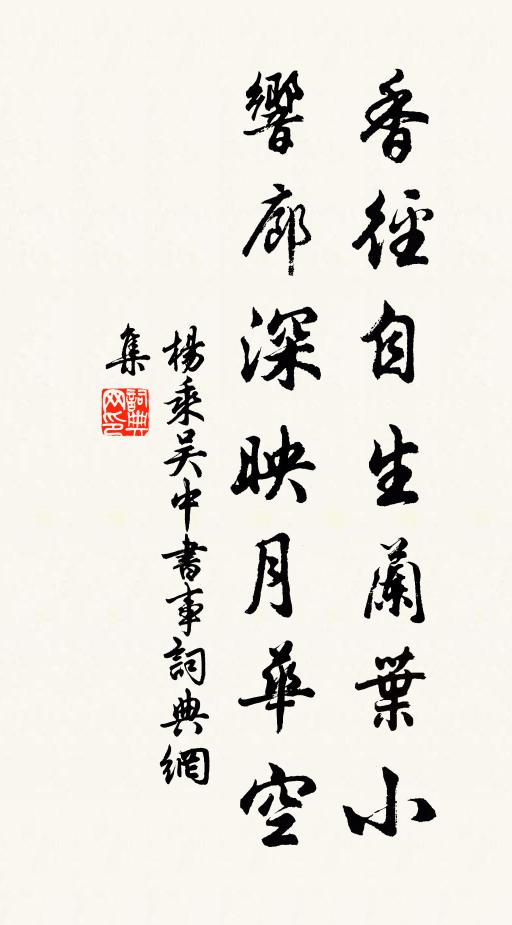 香徑自生蘭葉小
響廊深映月華空
楊乘吳中書事詞典網
集
詞典
网印